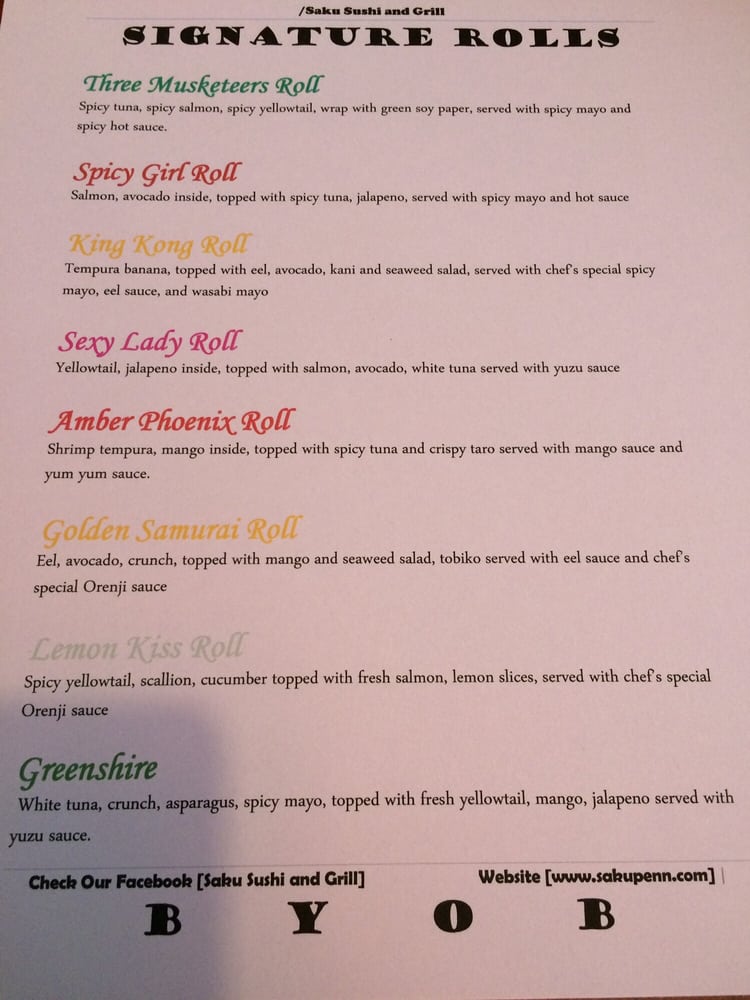 /Saku Sushi and Grill
SIGNATURE ROLLS
Three Musketeers Roll
Spicy tuna, spicy salmon, spicy yellowtail, wrap with green soy paper, served with spicy mayo and
spicy hot sauce.
Spicy Girl Roll
Salmon, avocado inside, topped with spicy tuna, jalapeno, served with spicy mayo and hot sauce
King Kong Roll
Tempura banana, topped with eel, avocado, kani and seaweed salad, served with chef's special spicy
mayo, eel sauce, and wasabi mayo
Sexy Lady Roll
Yellowtail, jalapeno inside, topped with salmon, avocado, white tuna served with yuzu sauce
Amber Phoenix Roll
Shrimp tempura, mango inside, topped with spicy tuna and crispy taro served with mango sauce and
yum yum sauce.
Golden Samurai Roll
Eel, avocado, crunch, topped with mango and seaweed salad, tobiko served with eel sauce and chef's
special Orenji sauce
Lemon Kiss Roll
Spicy yellowtail, scallion, cucumber topped with fresh salmon, lemon slices, served with chef's special
Orenji sauce
Greenshire
White tuna, crunch, asparagus, spicy mayo, topped with fresh yellowtail, mango, jalapeno served with
yuzu sauce.
Check Our Facebook [Saku Sushi and Grill] Website [www.sakupenn.com] |
B Y O B